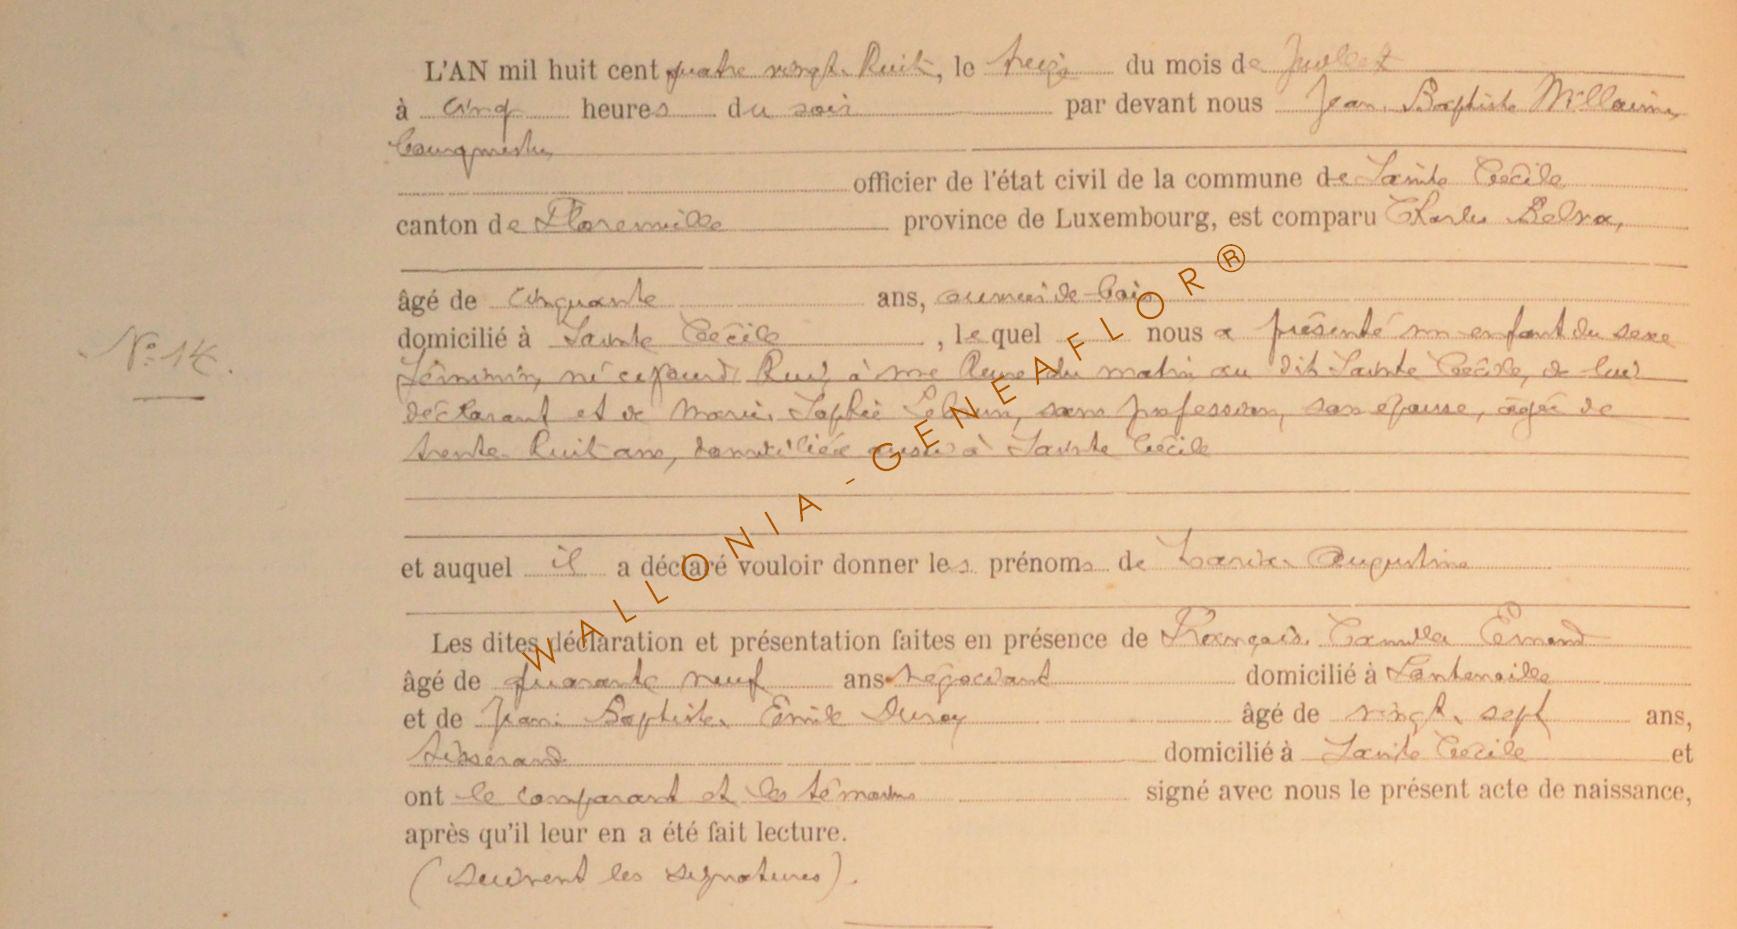 L'AN mil huit cent quatre vingt. huit, le treize du mois de Juillet
à cinq heures du soir par devant nous Jean. Baptiste
bourgmestre,
officier de l'état civil de la commune de Sainte Cécile
canton de Florenville province de Luxembourg, est comparu Charles
âgé de cinquante ans, ouvrier de bois
domicilié à Sainte Cécile, lequel nous a présenté un enfant du sexe
féminin, né cejourd'hui, à une heure du matin au dit Sainte Cécile, de lui
déclarant et de Marie. Sophie Lebrun, sans profession, son épouse, âgée de
trente. huit ans, domiciliée aussi à Sainte Cécile
et auquel il a déclaré vouloir donner les prénoms de Augustine
Les dites déclaration et présentation faites en présence de François. Camille
âgé de quarante neuf ans négociant domicilié à
et de Jean. Baptiste. Emile Duroy âgé de vingt. sept ans,
tisserand domicilié à Sainte Cécile et
ont le comparant et les témoins signé avec nous le présent acte de naissance,
après qu'il leur en a été fait lecture.
(suivent les signatures).
N° 14.
WALLONIA-GENEAFLOR®